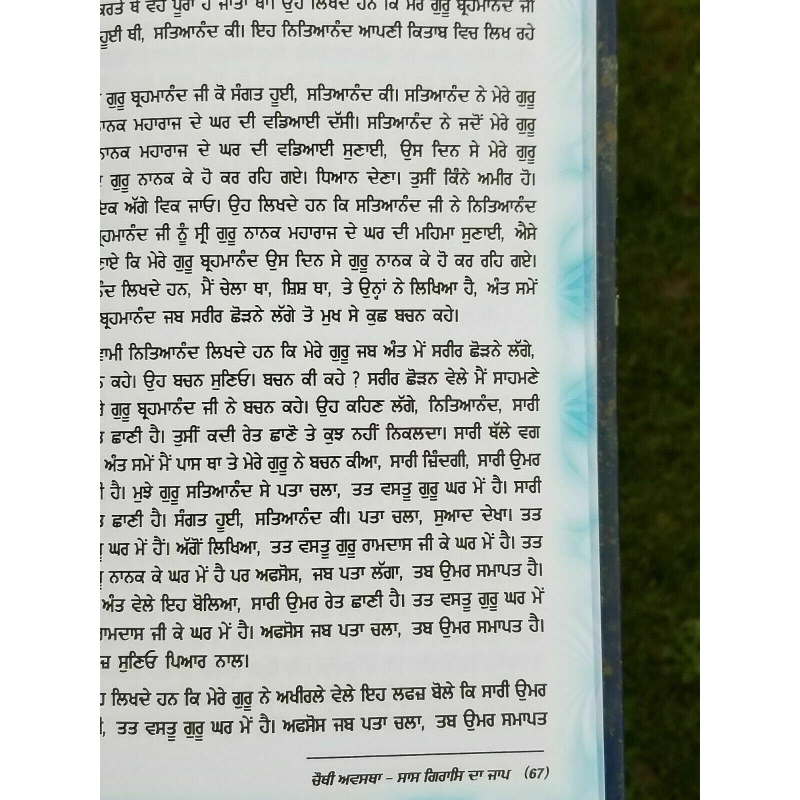 ਕਰਤੇ ਥੇ ਵਹ ਪੂਰਾ ਹੋ ਜਾਤਾ ਥਾ। ਉਹ ਲਿਖਦੇ ਹਨ ਕਿ ਮੇਰੇ ਗੁਰੂ ਬ੍ਰਹਮਾਨੰਦ ਜੀ
ਹੂਈ ਥੀ, ਸਤਿਆਨੰਦ ਕੀ। ਇਹ ਨਿਤਿਆਨੰਦ ਆਪਣੀ ਕਿਤਾਬ ਵਿਚ ਲਿਖ ਰਹੇ
ਗੁਰੂ ਬ੍ਰਹਮਾਨੰਦ ਜੀ ਕੋ ਸੰਗਤ ਹੂਈ, ਸਤਿਆਨੰਦ ਕੀ। ਸਤਿਆਨੰਦ ਨੇ ਮੇਰੇ ਗੁਰੂ
ਨਾਨਕ ਮਹਾਰਾਜ ਦੇ ਘਰ ਦੀ ਵਡਿਆਈ ਦੱਸੀ। ਸਤਿਆਨੰਦ ਨੇ ਜਦੋਂ ਮੇਰੇ ਗੁਰੂ
ਨਾਨਕ ਮਹਾਰਾਜ ਦੇ ਘਰ ਦੀ ਵਡਿਆਈ ਸੁਣਾਈ, ਉਸ ਦਿਨ ਸੇ ਮੇਰੇ ਗੁਰੂ
ਗੁਰੂ ਨਾਨਕ ਕੇ ਹੋ ਕਰ ਰਹਿ ਗਏ। ਧਿਆਨ ਦੇਣਾ। ਤੁਸੀਂ ਕਿੰਨੇ ਅਮੀਰ ਹੋ।
ਅੱਗੇ ਵਿਕ ਜਾਓ। ਉਹ ਲਿਖਦੇ ਹਨ ਕਿ ਸਤਿਆਨੰਦ ਜੀ ਨੇ ਨਿਤਿਆਨੰਦ
ਬ੍ਰਹਮਾਨੰਦ ਜੀ ਨੂੰ ਸ੍ਰੀ ਗੁਰੂ ਨਾਨਕ ਮਹਾਰਾਜ ਦੇ ਘਰ ਦੀ ਮਹਿਮਾ ਸੁਣਾਈ, ਐਸੇ
ਕਿ ਮੇਰੇ ਗੁਰੂ ਬ੍ਰਹਮਾਨੰਦ ਉਸ ਦਿਨ ਸੇ ਗੁਰੂ ਨਾਨਕ ਕੇ ਹੋ ਕਰ ਰਹਿ ਗਏ।
ਲਿਖਦੇ ਹਨ, ਮੈਂ ਚੇਲਾ ਥਾ, ਸ਼ਿਸ਼ ਥਾ, ਤੇ ਉਨ੍ਹਾਂ ਨੇ ਲਿਖਿਆ ਹੈ, ਅੰਤ ਸਮੇਂ
ਬ੍ਰਹਮਾਨੰਦ ਜਬ ਸਰੀਰ ਛੋੜਨੇ ਲੱਗੇ ਤੋ ਮੁਖ ਸੇ ਕੁਛ ਬਚਨ ਕਹੇ।
ਸਵਾਮੀ ਨਿਤਿਆਨੰਦ ਲਿਖਦੇ ਹਨ ਕਿ ਮੇਰੇ ਗੁਰੂ ਜਬ ਅੰਤ ਮੇਂ ਸਰੀਰ ਛੋੜਨੇ ਲੱਗੇ,
ਕਹੇ। ਉਹ ਬਚਨ ਸੁਣਿਓ। ਬਚਨ ਕੀ ਕਹੇ ? ਸਰੀਰ ਛੋੜਨ ਵੇਲੇ ਮੈਂ ਸਾਹਮਣੇ
ਗੁਰੂ ਬ੍ਰਹਮਾਨੰਦ ਜੀ ਨੇ ਬਚਨ ਕਹੇ। ਉਹ ਕਹਿਣ ਲੱਗੇ, ਨਿਤਿਆਨੰਦ, ਸਾਰੀ
ਛਾਣੀ ਹੈ। ਤੁਸੀਂ ਕਦੀ ਰੇਤ ਛਾਣੋ ਤੇ ਕੁਝ ਨਹੀਂ ਨਿਕਲਦਾ। ਸਾਰੀ ਥੱਲੇ ਵਗ
ਅੰਤ ਸਮੇਂ ਮੈਂ ਪਾਸ ਥਾ ਤੇ ਮੇਰੇ ਗੁਰੂ ਨੇ ਬਚਨ ਕੀਆ, ਸਾਰੀ ਜ਼ਿੰਦਗੀ, ਸਾਰੀ ਉਮਰ
ਹੈ। ਮੁਝੇ ਗੁਰੂ ਸਤਿਆਨੰਦ ਸੇ ਪਤਾ ਚਲਾ, ਤਤ ਵਸਤੂ ਗੁਰੂ ਘਰ ਮੇਂ ਹੈ। ਸਾਰੀ
ਛਾਣੀ ਹੈ। ਸੰਗਤ ਹੂਈ, ਸਤਿਆਨੰਦ ਕੀ। ਪਤਾ ਚਲਾ, ਸੁਆਦ ਦੇਖਾ। ਤਤ
ਘਰ ਮੇਂ ਹੈਂ। ਅੱਗੋਂ ਲਿਖਿਆ, ਤਤ ਵਸਤੂ ਗੁਰੂ ਰਾਮਦਾਸ ਜੀ ਕੇ ਘਰ ਮੇਂ ਹੈ। ਤਤ
ਨਾਨਕ ਕੇ ਘਰ ਮੇਂ ਹੈ ਪਰ ਅਫਸੋਸ, ਜਬ ਪਤਾ ਲੱਗਾ, ਤਬ ਉਮਰ ਸਮਾਪਤ ਹੈ।
ਅੰਤ ਵੇਲੇ ਇਹ ਬੋਲਿਆ, ਸਾਰੀ ਉਮਰ ਰੇਤ ਛਾਣੀ ਹੈ। ਤਤ ਵਸਤੂ ਗੁਰੂ ਘਰ ਮੇਂ
ਰਾਮਦਾਸ ਜੀ ਕੇ ਘਰ ਮੇਂ ਹੈ। ਅਫਸੋਸ ਜਬ ਪਤਾ ਚਲਾ, ਤਬ ਉਮਰ ਸਮਾਪਤ ਹੈ।
ਸੁਣਿਓ ਪਿਆਰ ਨਾਲ।
ਲਿਖਦੇ ਹਨ ਕਿ ਮੇਰੇ ਗੁਰੂ ਨੇ ਅਖੀਰਲੇ ਵੇਲੇ ਇਹ ਲਫਜ਼ ਬੋਲੇ ਕਿ ਸਾਰੀ ਉਮਰ
ਤਤ ਵਸਤੂ ਗੁਰੂ ਘਰ ਮੇਂ ਹੈ। ਅਫਸੋਸ ਜਬ ਪਤਾ ਚਲਾ, ਤਬ ਉਮਰ ਸਮਾਪਤ
ਚੌਥੀ ਅਵਸਥਾ - ਸਾਸ ਗਿਰਾਸਿ ਦਾ ਜਾਪ (67)